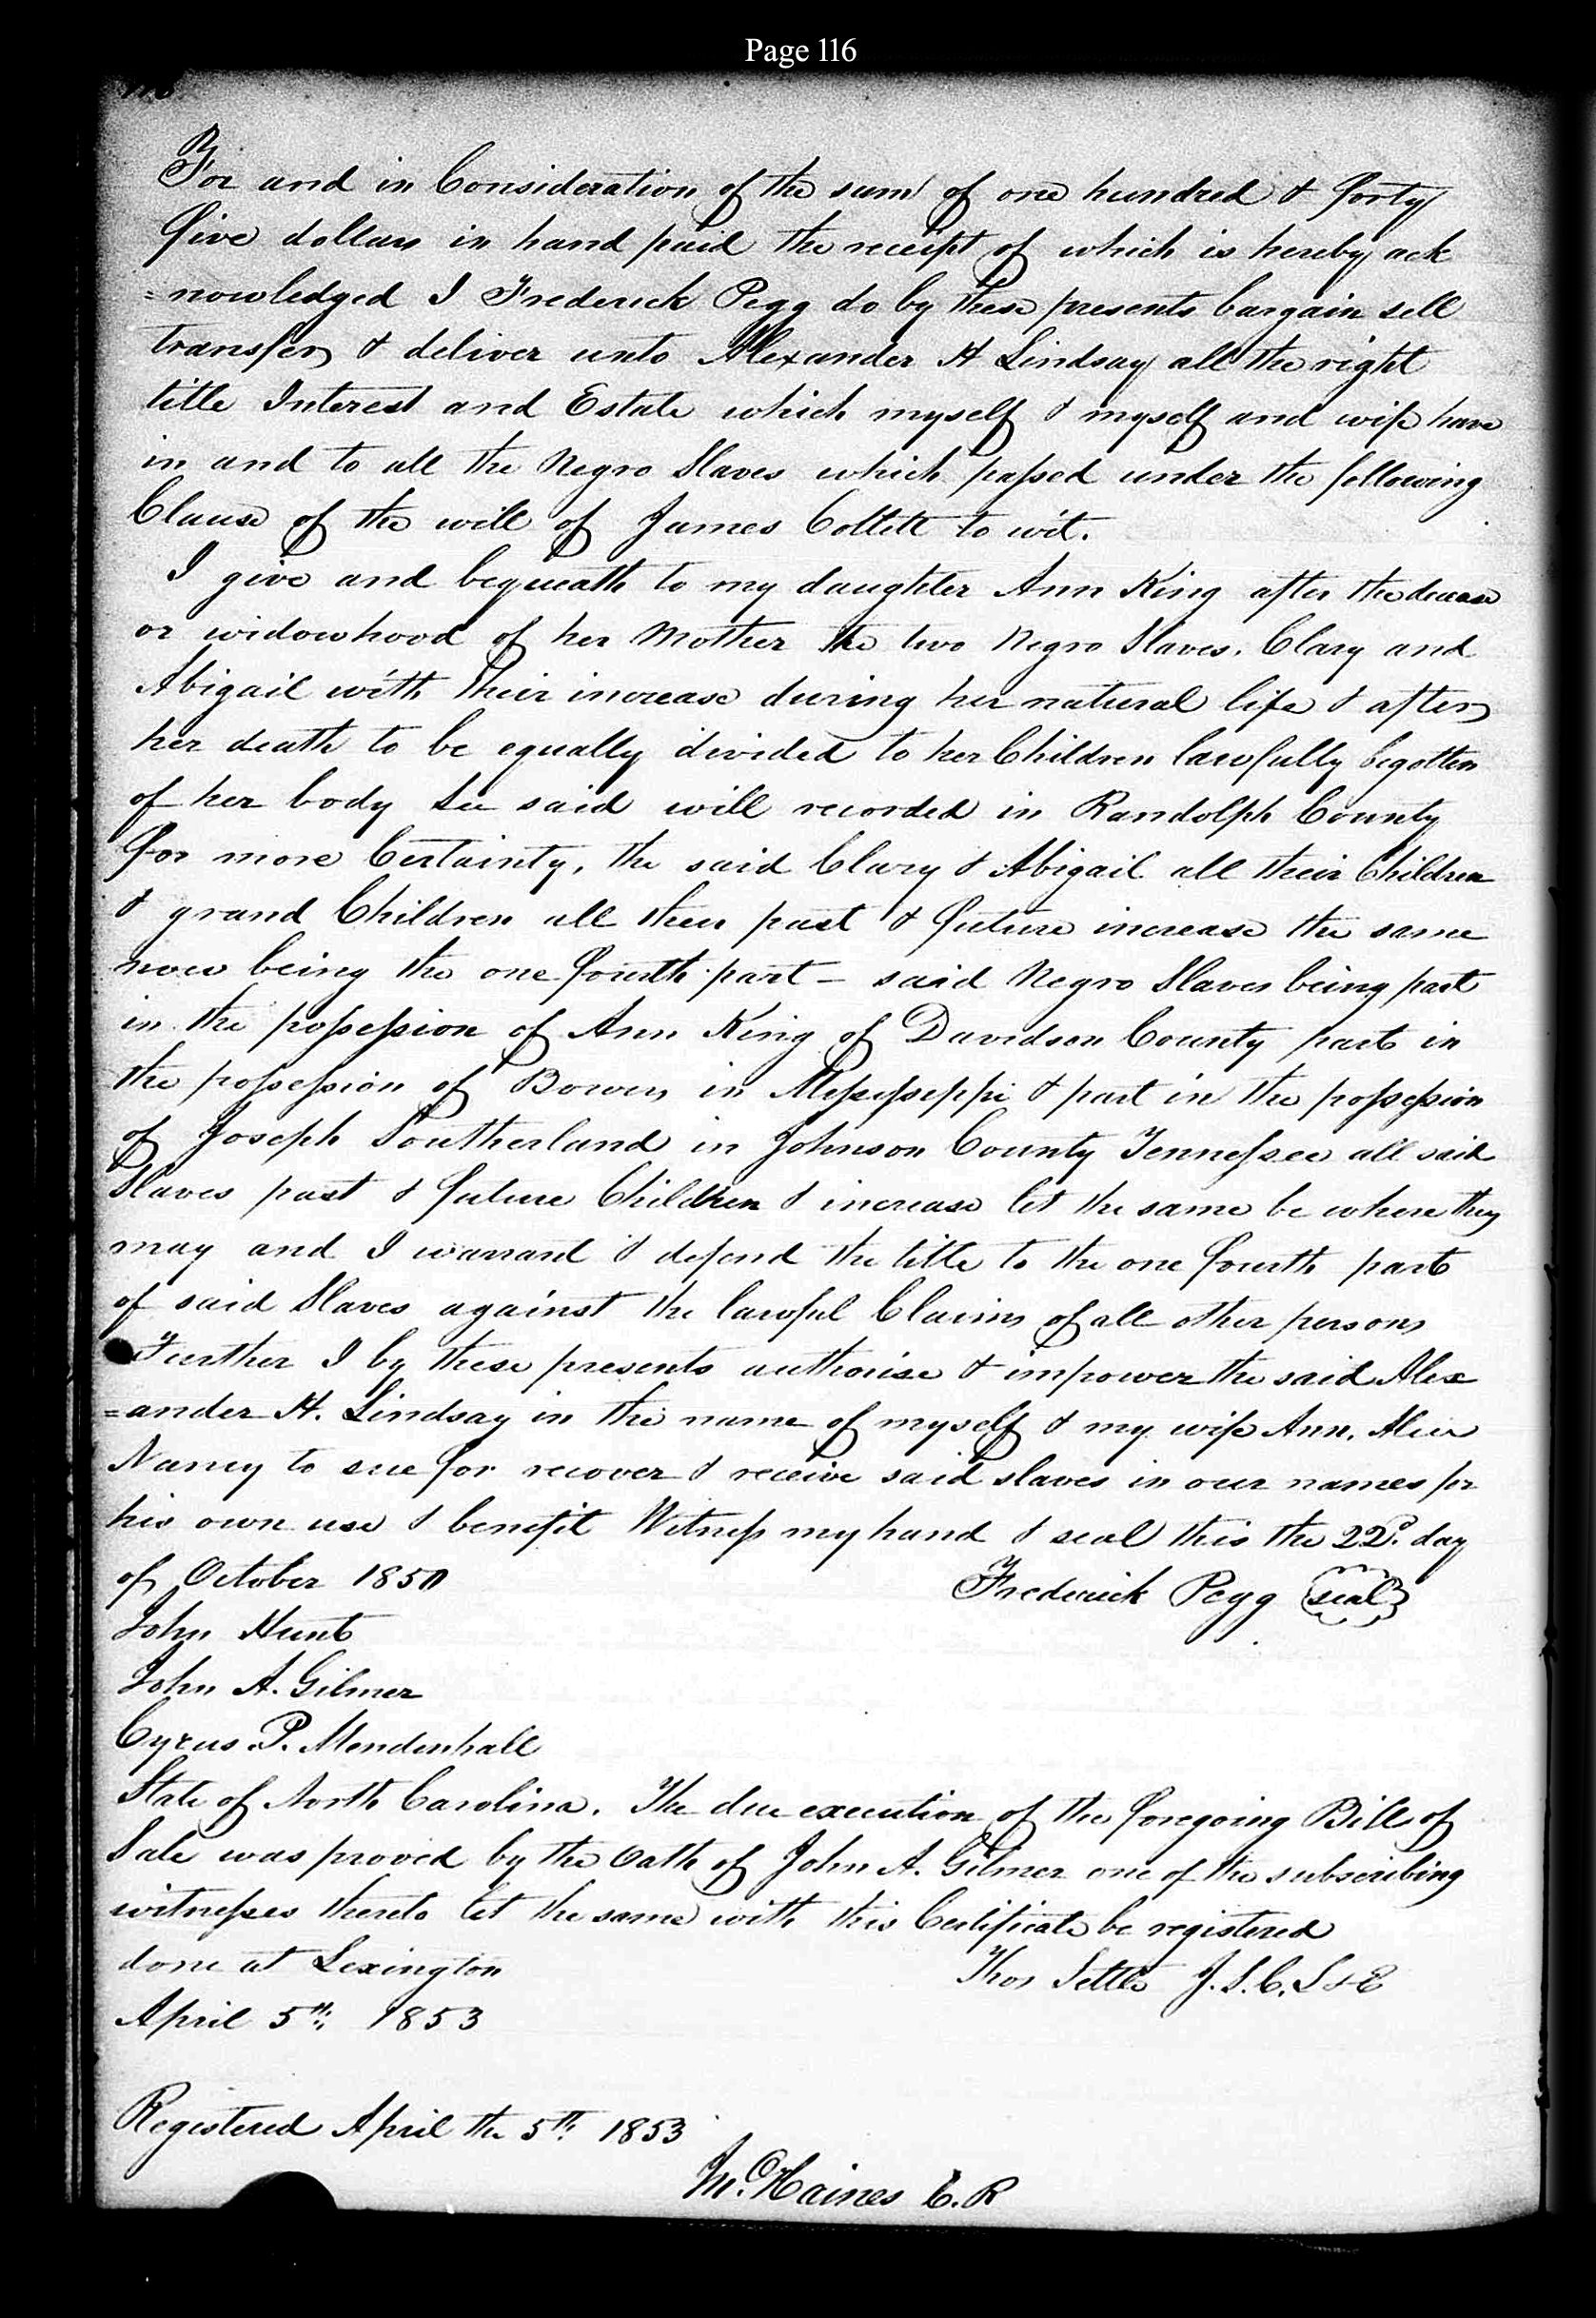 Page 116
116
For and in Consideration of the sum of one hundred & forty
five dollars in hand paid the receipt of which is hereby ack
=nowledged I Frederick Pegg do by these presents bargain sell
transfer & deliver unto Alexander H Lindsay all the right
title Interest and Estate which myself & myself and wife have
in and to all the Negro Slaves which passed under the following
Clause of the will of James Collett to wit.
I give and bequeath to my daughter Ann King after the decease
or widowhood of her Mother the two Negro Slaves. Clary and
Abigail with their increase during her natural life & after
her death to be equally divided to her Children lawfully begotten
of her body See said will recorded in Randolph County
for more Certainty, the said Clary & Abigail all their Children
& grand Children all their past & future increase the same
now being the one fourth part – said Negro Slaves being part
in the possession of Ann King of Davidson County part in
the possession of Bowers in Messesseppi & part in the possession
of Joseph Southerland in Johnson County Tennessee all said
Slaves past & future Children & increase let the same be where they
may and I warrant & defend the title to the one fourth part
of said Slaves against the lawful Claims of all other persons
Further I by these presents authorise & impower the said Alex
=ander H. Lindsay in the name of myself & my wife Ann. Alias
Nancy to sue for recover & receive said slaves in our names for
his own use & benefit Witness my hand & seal this the 22d. day
of October 1850
Frederick Pegg seal
John Hunt
John A. Gilmer
Cyrus P. Mendenhall
State of North Carolina. The due execution of the foregoing Bill of
Sale was proved by the Oath of John A. Gilmer one of the subscribing
witnesses thereto let the same with this Certificate be registered
done at Lexington
Thos Settle J. S. C. L & E
April 5th. 1853
Registered April the 5th. 1853
M. Haines C. R